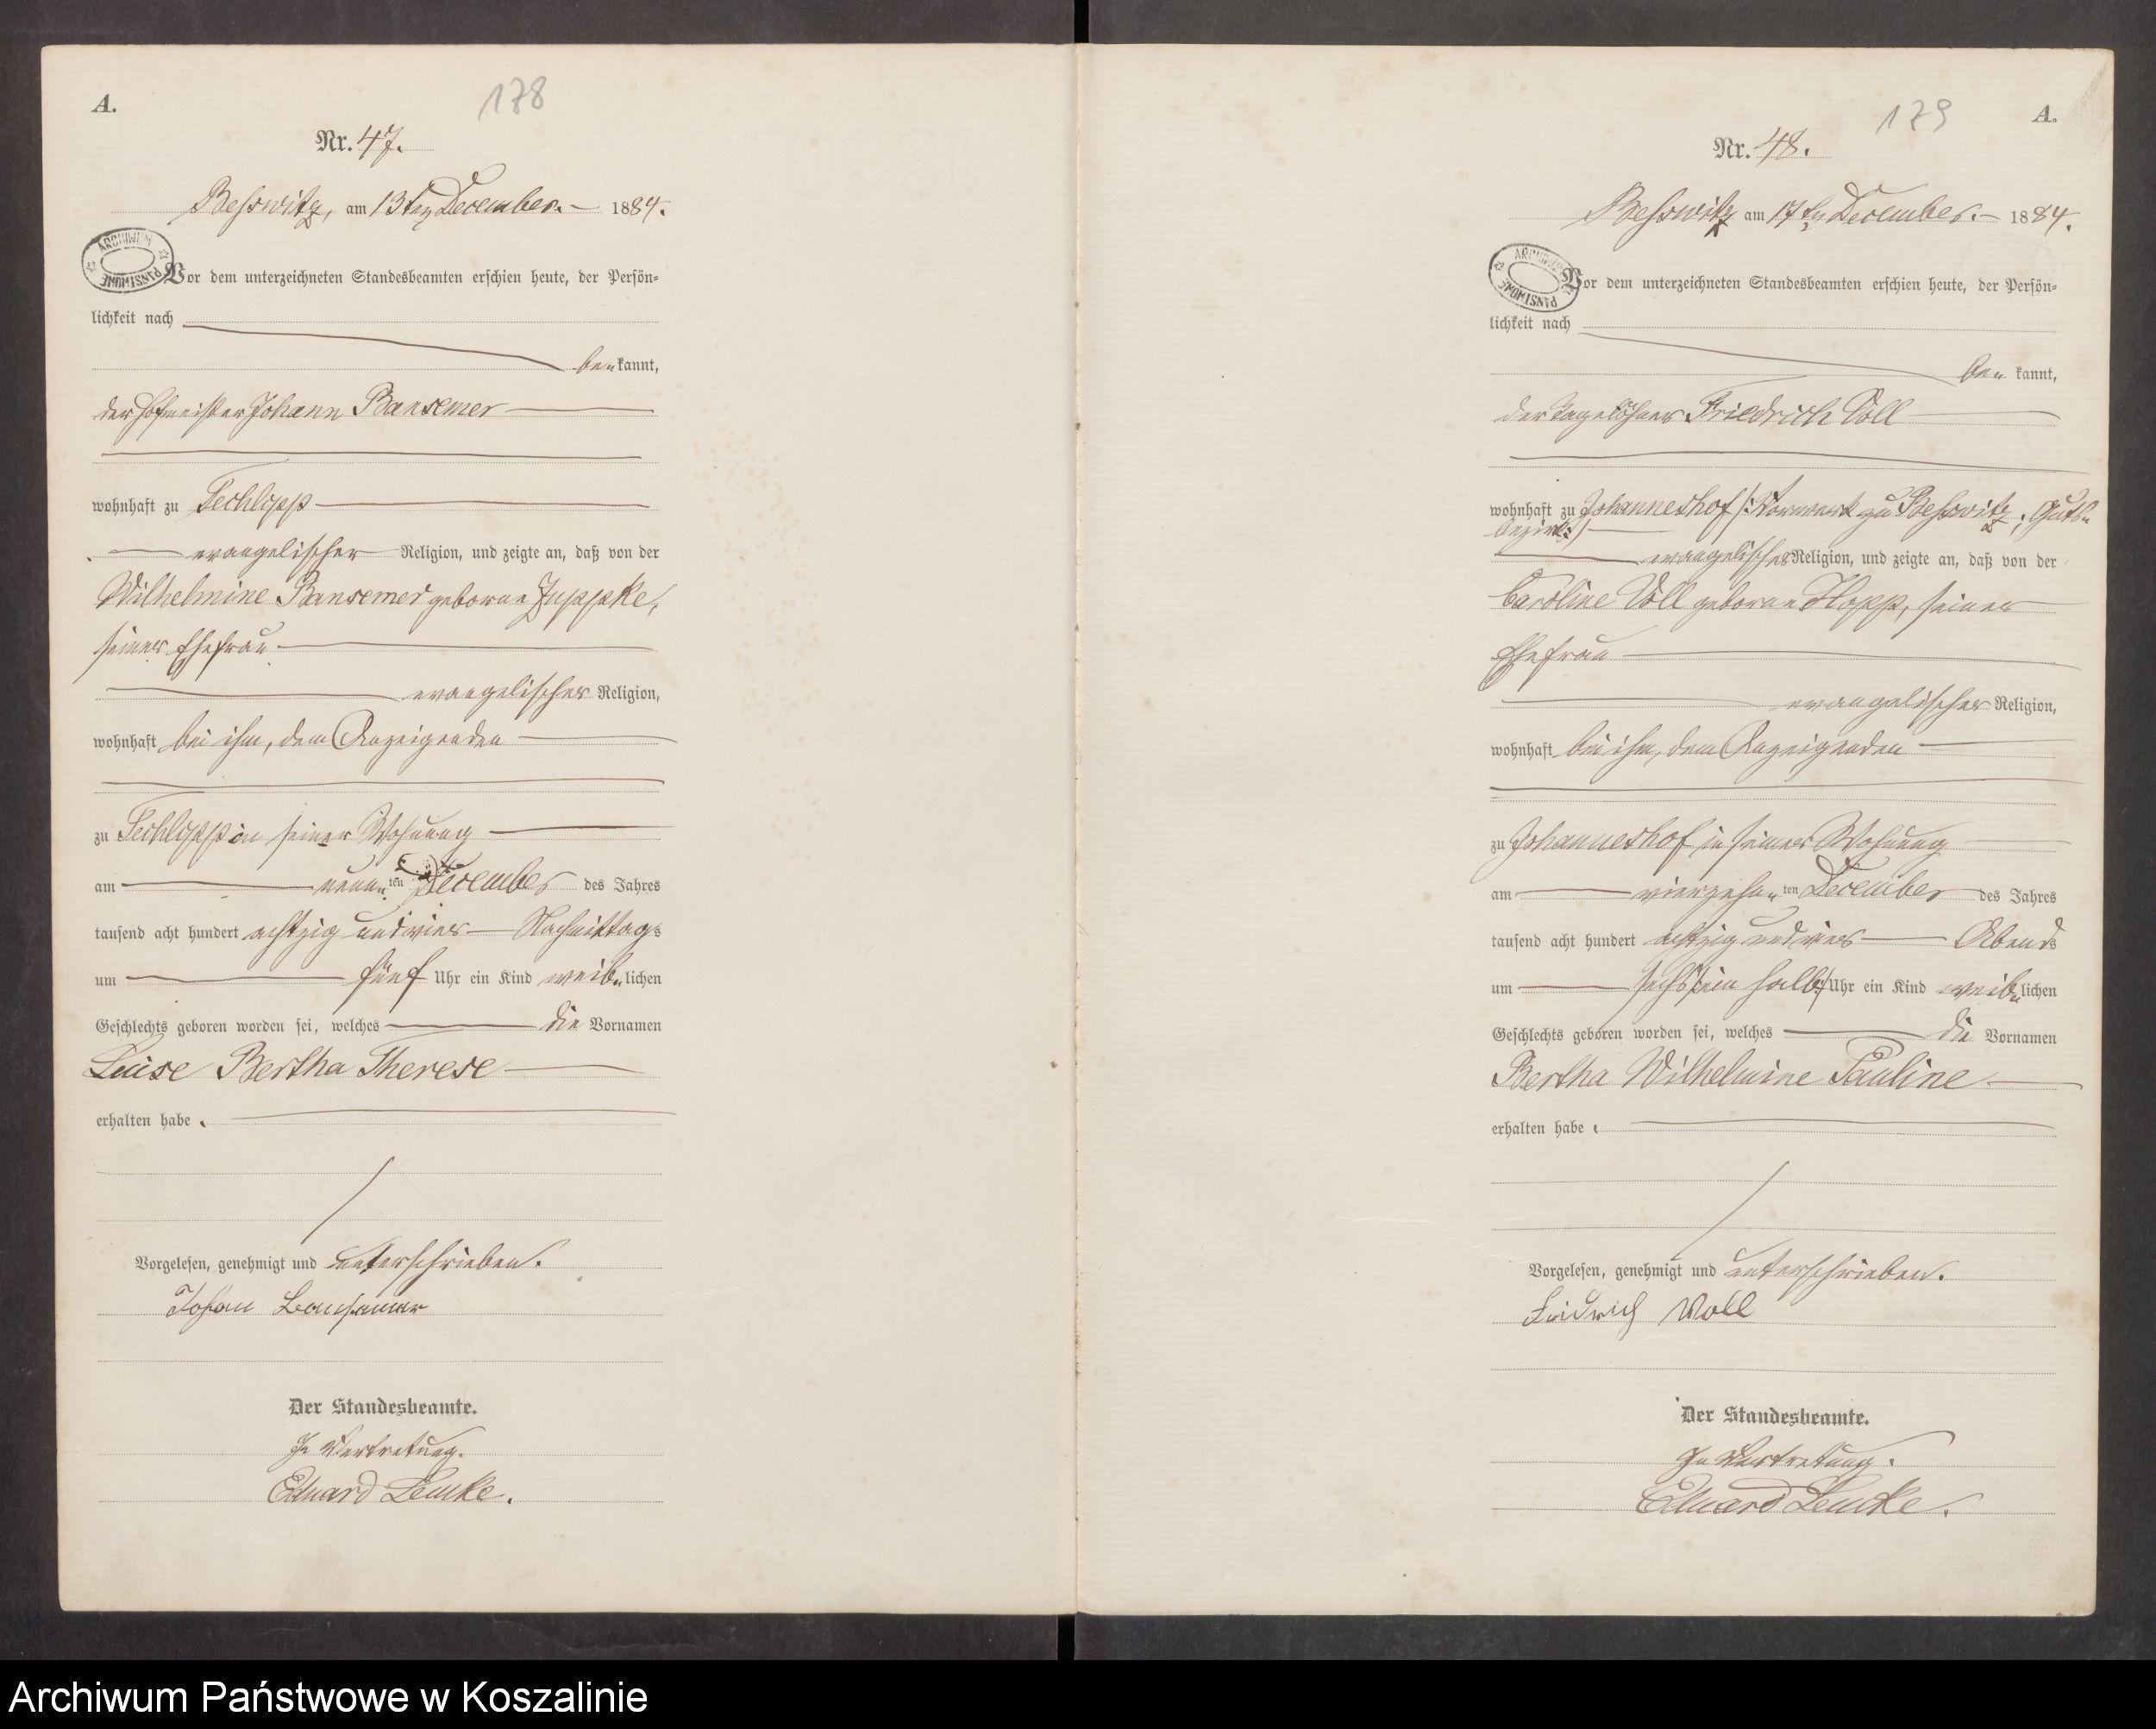 A.
178
Nr. 47.
Besswitz, am 13ten December. 1884.
ARCHIWUM PAŃSTWOWE
Vor dem unterzeichneten Standesbeamten erschien heute, der Persön=
lichkeit nach
be kannt,
der Hofmeister Johann Bansemer
wohnhaft zu Techlipp
evangelischer Religion, und zeigte an, daß von der
Wilhelmine Bansemer geborne Juppke,
seiner Ehefrau
evangelischer Religion,
wohnhaft bei ihm, dem Anzeigenden
zu Techlipp in seiner Wohnung
am neun ten December des Jahres
tausend acht hundert achtzig und vier Nachmittags
um fünf Uhr ein Kind weib lichen
Geschlechts geboren worden sei, welches die Vornamen
Luise Bertha Therese
erhalten habe.
Vorgelesen, genehmigt und unterschrieben.
Johan
Der Standesbeamte.
In Vertretung.
Eduard Lemke.
179
A.
Nr. 48.
Besswitz am 17ten December. 1884.
ARCHIWUM PAŃSTWOWE
Vor dem unterzeichneten Standesbeamten erschien heute, der Persön=
lichkeit nach
be kannt,
der Tagelöhner Friedrich Voll
wohnhaft zu Johanneshof /: Vorwerk zu Besswitz, Guts-
bezirk :/
evangelischer Religion, und zeigte an, daß von der
Caroline Voll geborne Hopp, seiner
Ehefrau
evangelischer Religion,
wohnhaft bei ihm, dem Anzeigenden
zu Johanneshof in seiner Wohnung
am vierzehn ten December des Jahres
tausend acht hundert achtzig und vier Abends
um sechs /ein halb/ Uhr ein Kind weib lichen
Geschlechts geboren worden sei, welches die Vornamen
Bertha Wilhelmine Pauline
erhalten habe.
Vorgelesen, genehmigt und unterschrieben.
Fridrich Voll
Der Standesbeamte.
In Vertretung.
Eduard Lemke.
Archiwum Państwowe w Koszalinie